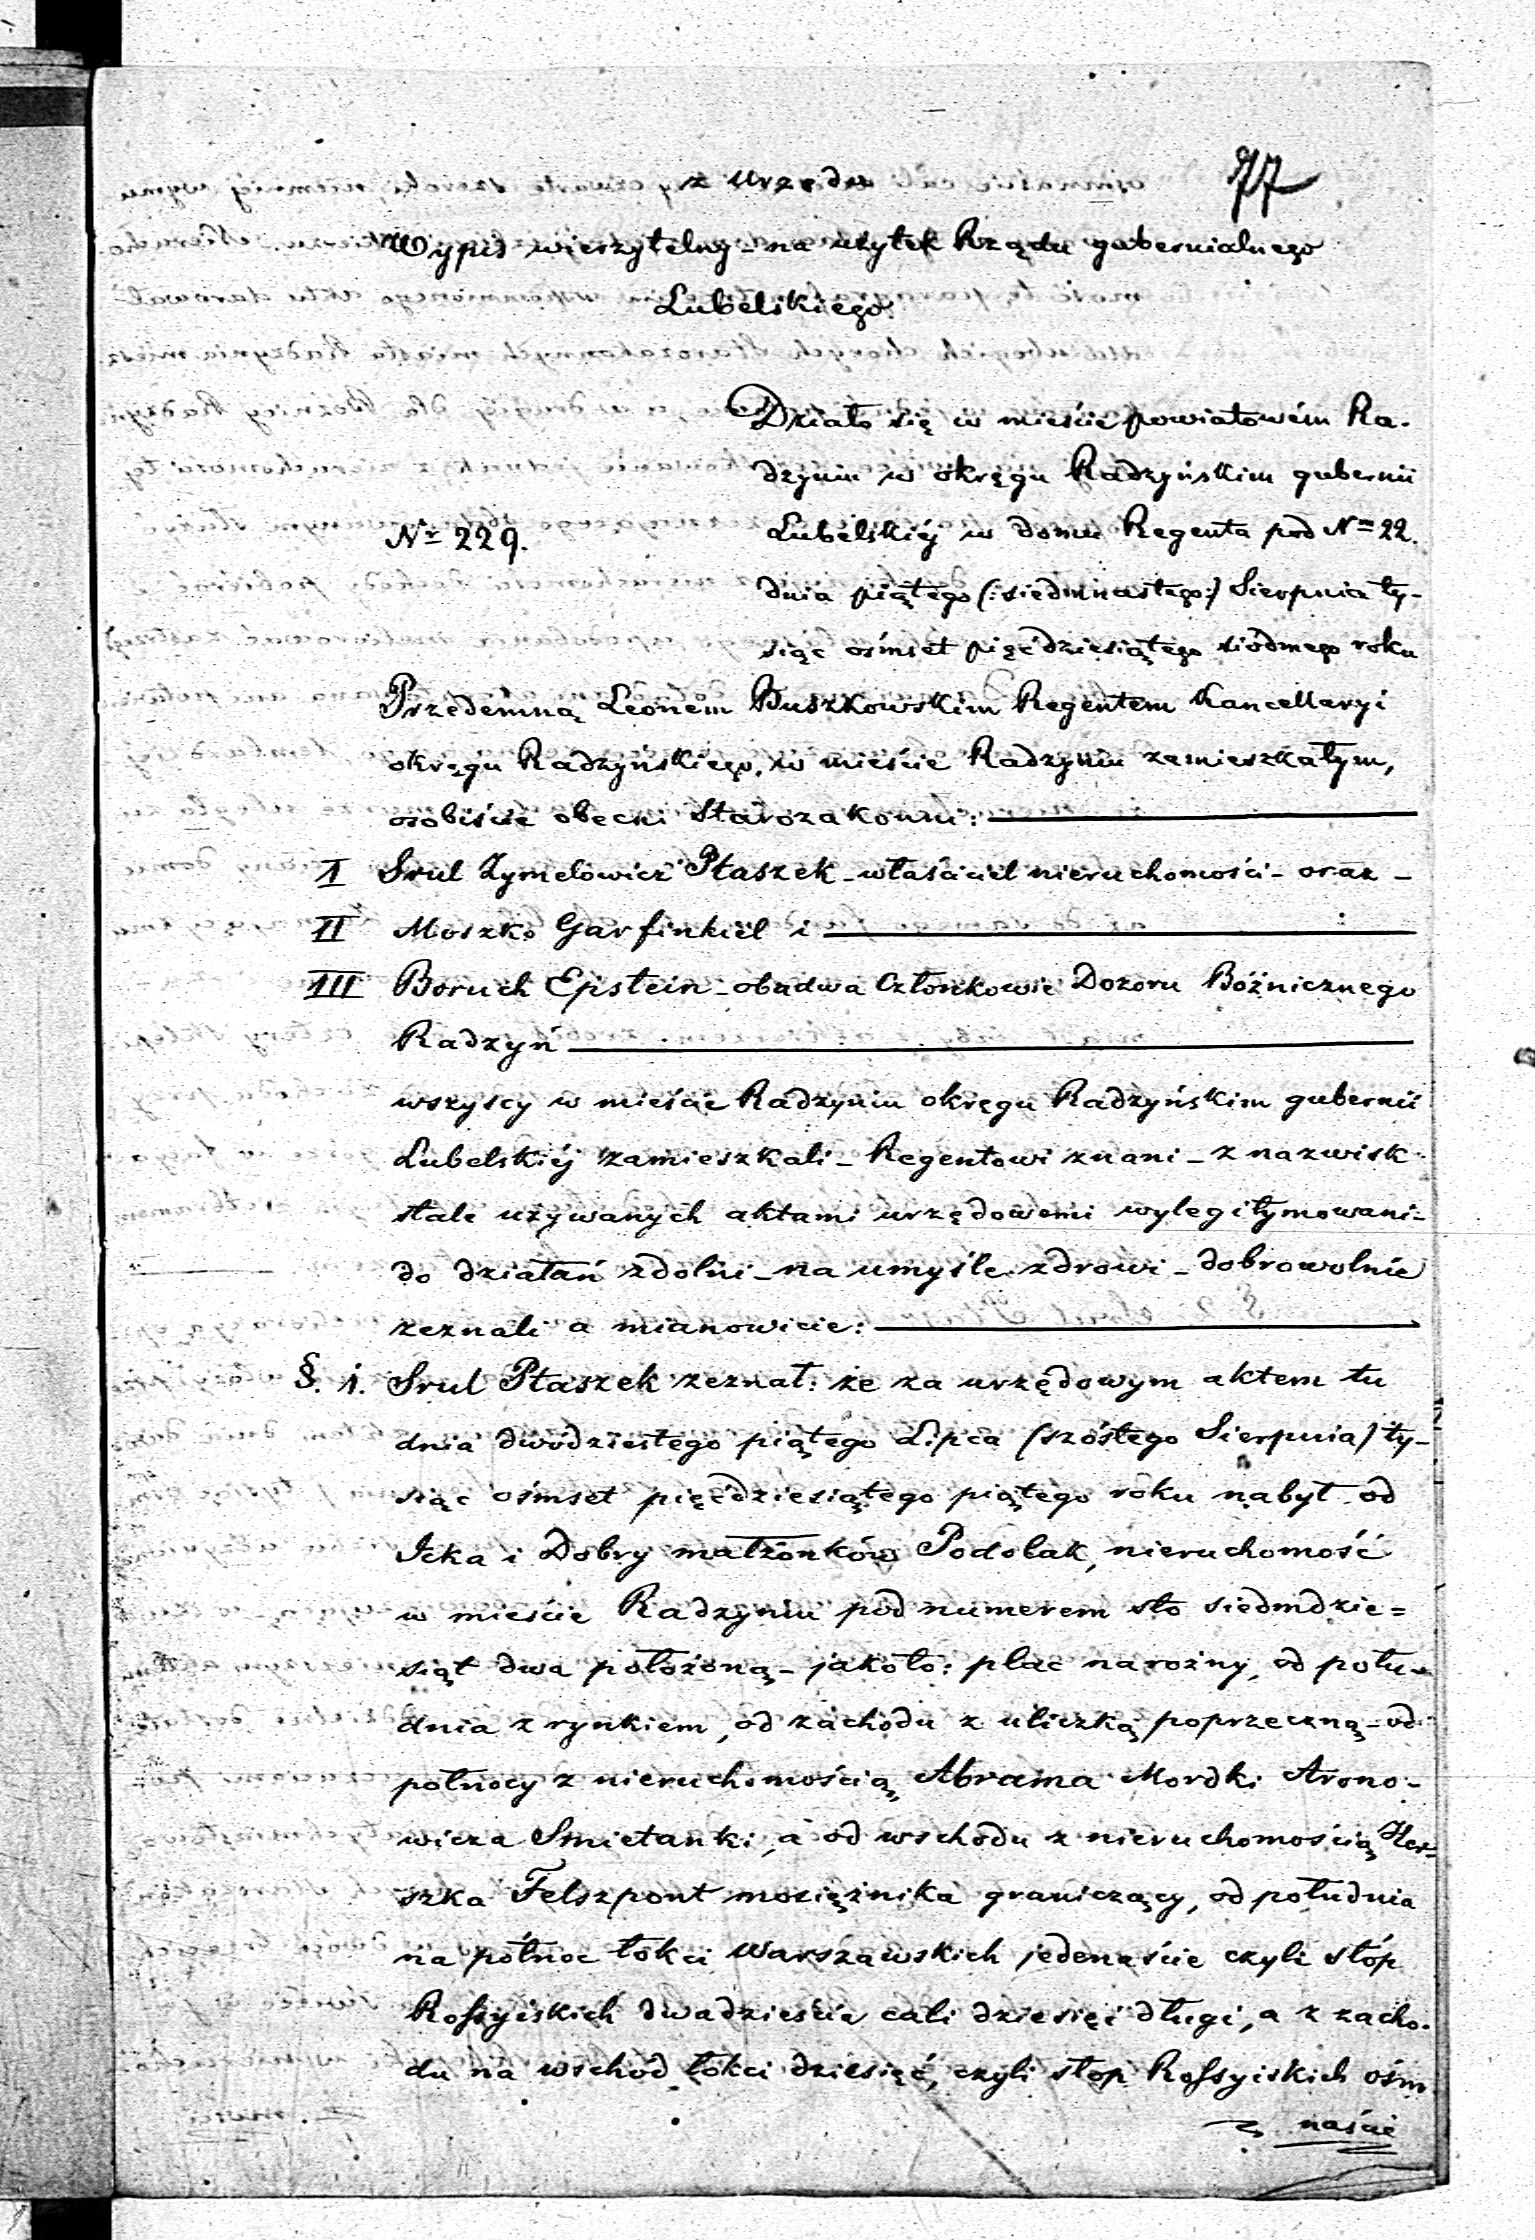 77
z urzędu
Wypis wierzytelny - na użytek Rządu gubernialnego
Lubelskiego.
Działo się w mieście powiatowém Ra-
dzyniu w okręgu Radzyńskim gubernii
Nr 229.
Lubelskiéj w domu Regenta pod No 22.
dnia piątego (: siedmnastego :) Sierpnia ty-
siąc ośmset pięćdziesiątego siódmego roku
Przedemną Leonem Buszkowskim Regentem Kancellaryi
okręgu Radzyńskiego, w mieście Radzyniu zamieszkałym,
osobiście obecni Starozakonni:
I Srul Zymelowicz Ptaszek - właściciel nieruchomości - oraz -
II Moszko Garfinkiel i
III Boruch Epstein - obadwa Członkowie Dozoru Bóżnicznego
Radzyń
wszyscy w mieście Radzyniu okręgu Radzyńskim gubernii
Lubelskiéj zamieszkali - Regentowi znani - z nazwisk
stale używanych aktami urzędowemi wylegitymowani -
do działań zdolni - na umyśle zdrowi - dobrowolnie
zeznali a mianowicie:
§. 1. Srul Ptaszek zeznał: że za urzędowym aktem tu
dnia dwódziestego piątego Lipca (szóstego Sierpnia) ty-
siąc ośmset pięćdziesiątego piątego roku nabył od
Icka i Dobry małżonków Podolak, nieruchomość
w mieście Radzyniu pod numerem sto siedmdzie=
siąt dwa położoną - jakoto: plac narożny, od połu-
dnia z rynkiem, od zachodu z uliczką poprzeczną - od
północy z nieruchomością Abrama Mordki Arono-
wicza Smietanki, a od wschodu z nieruchomością Her=
szka Felszpont mosiężnika graniczący, od południa
na północ łokci Warszawskich jedenaście czyli stóp
Rossyiskich dwadzieście cali dziesięć długi, a z zacho-
du na wschód łokci dziesięć, czyli stop Rossyiskich ośm
naście